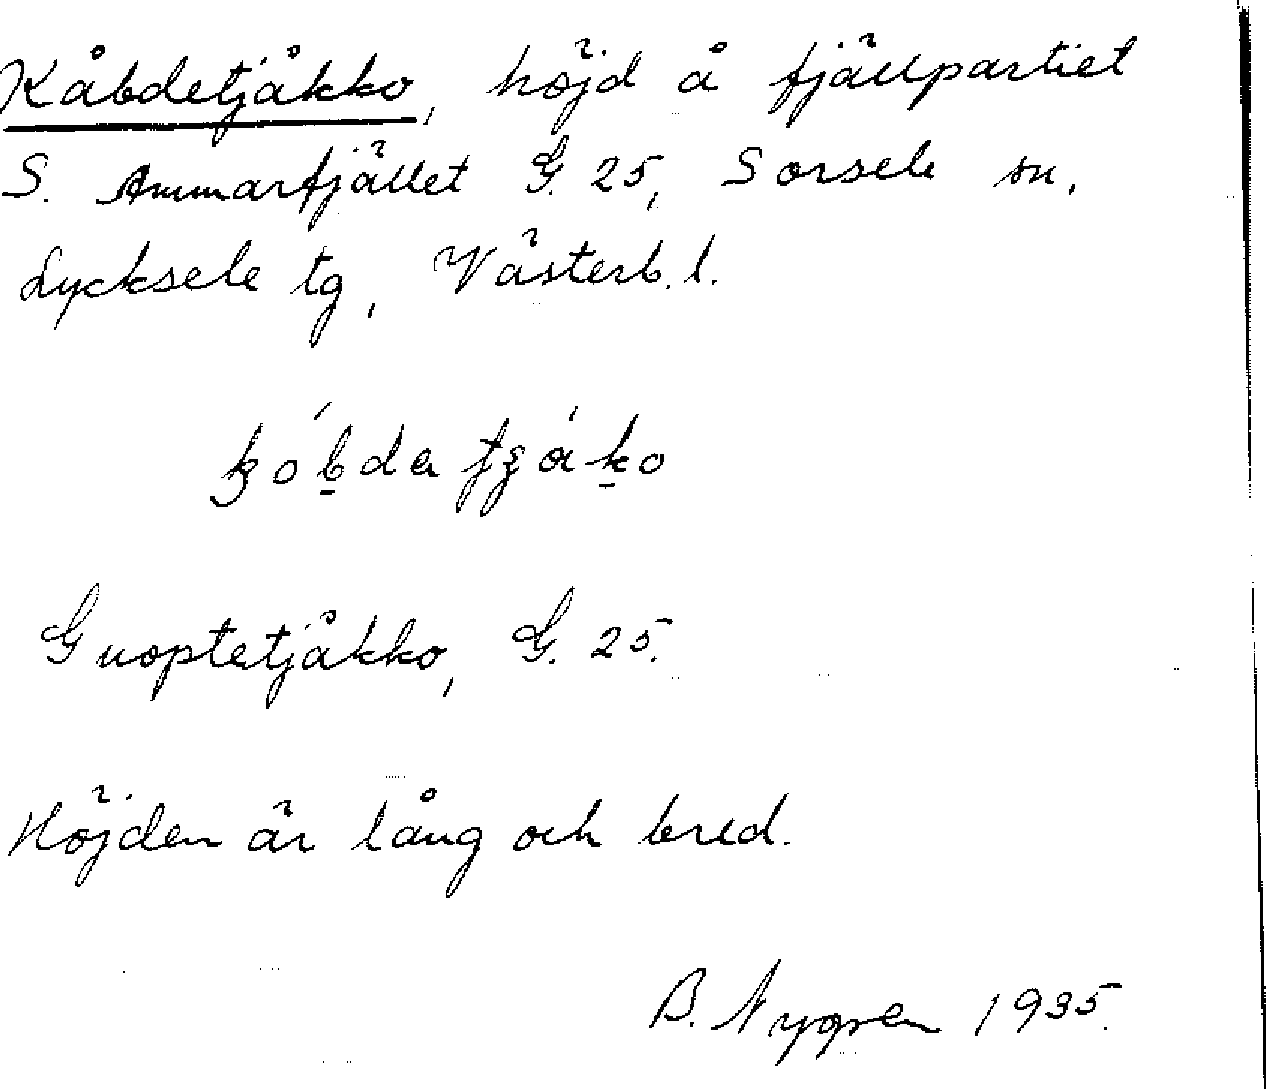 Kåbdetjåkko, höjd å fjällpartiet
S. Ammarfjället G. 25, Sorsele sn,
Lycksele tg, Västerb. l.
Guoptetjåkko, G. 25.
Höjden är lång och bred.
B. Nygren 1935.